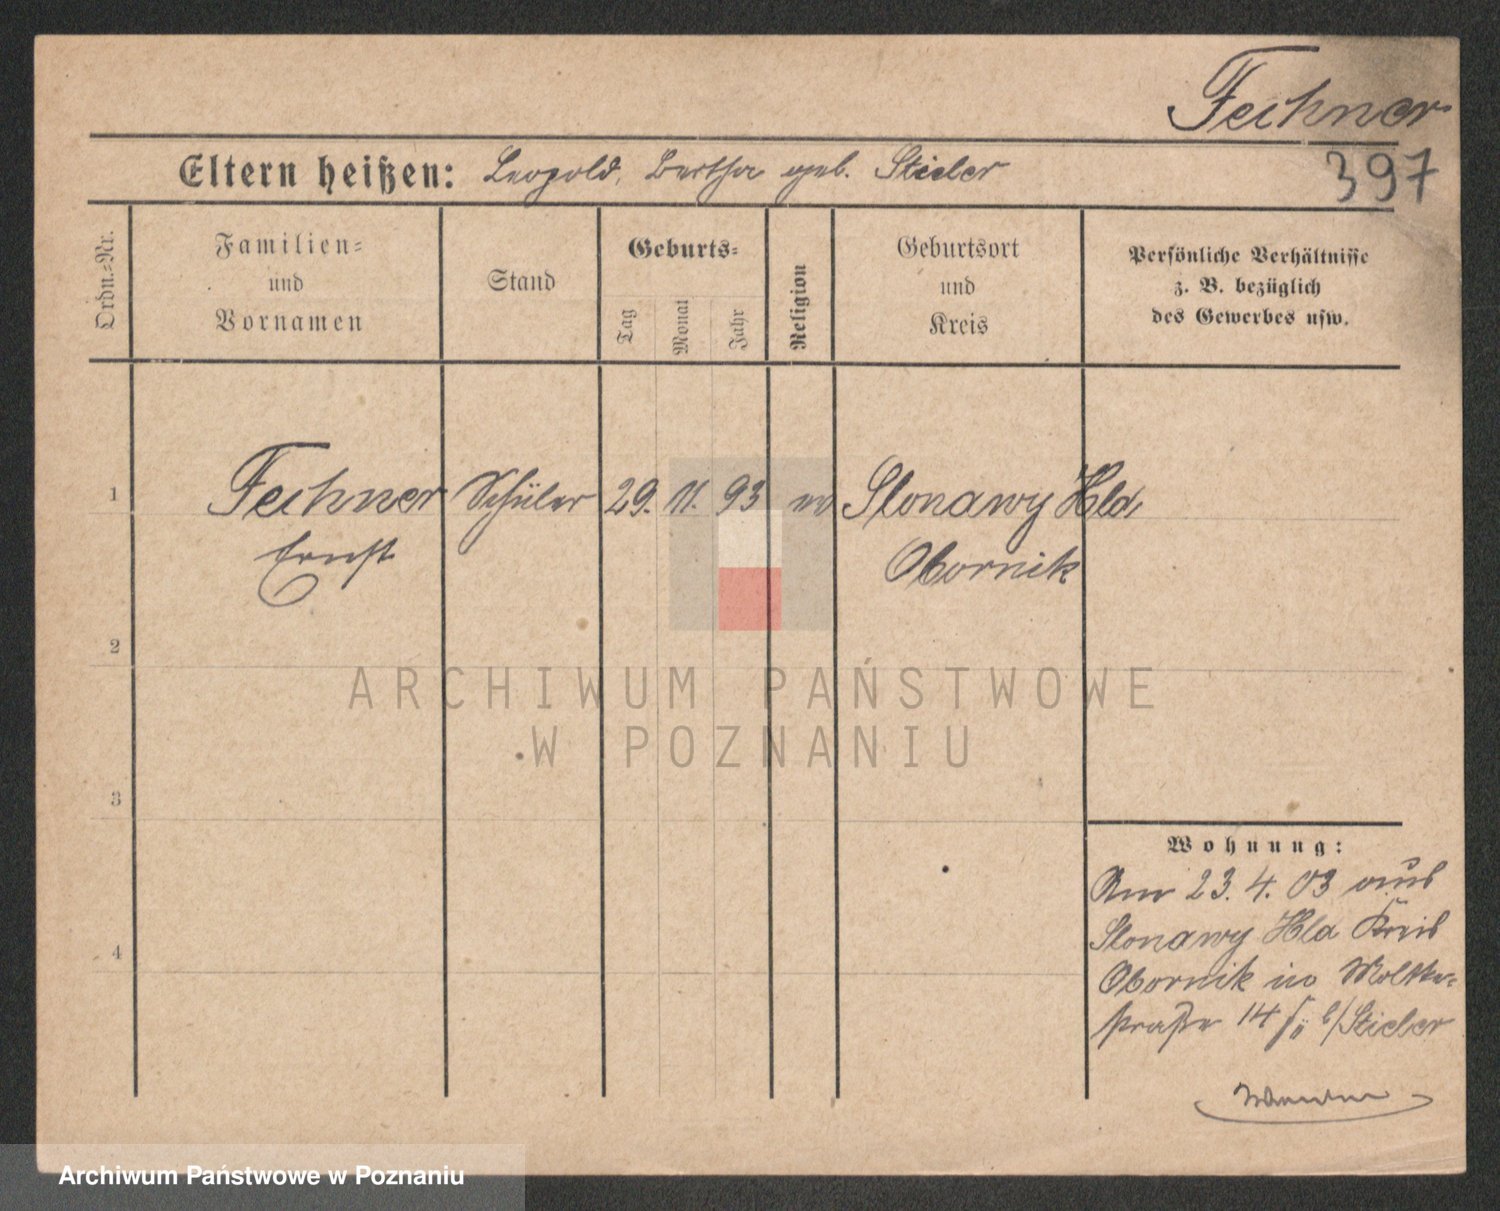 Fechner
397
Eltern heißen: Leopold, Bertha geb. Stieler
Ordn.-Nr.
Familien-
und
Vornamen
Stand
Geburts-
Tag
Monat
Jahr
Religion
Geburtsort
und
Kreis
Persönliche Verhältnisse
z. B. bezüglich
des Gewerbes usw.
1
Fechner Schüler 29. 11. 93 ev Slonawy Hld,
Ernst Obornik
2
ARCHIWUM PAŃSTWOWE
W POZNANIU
3
Wohnung:
Am 23. 4. 03 aus
Slonawy Hld Kreis
4
Obornik in Moltke-
straße 14 b/Stieler
Archiwum Państwowe w Poznaniu